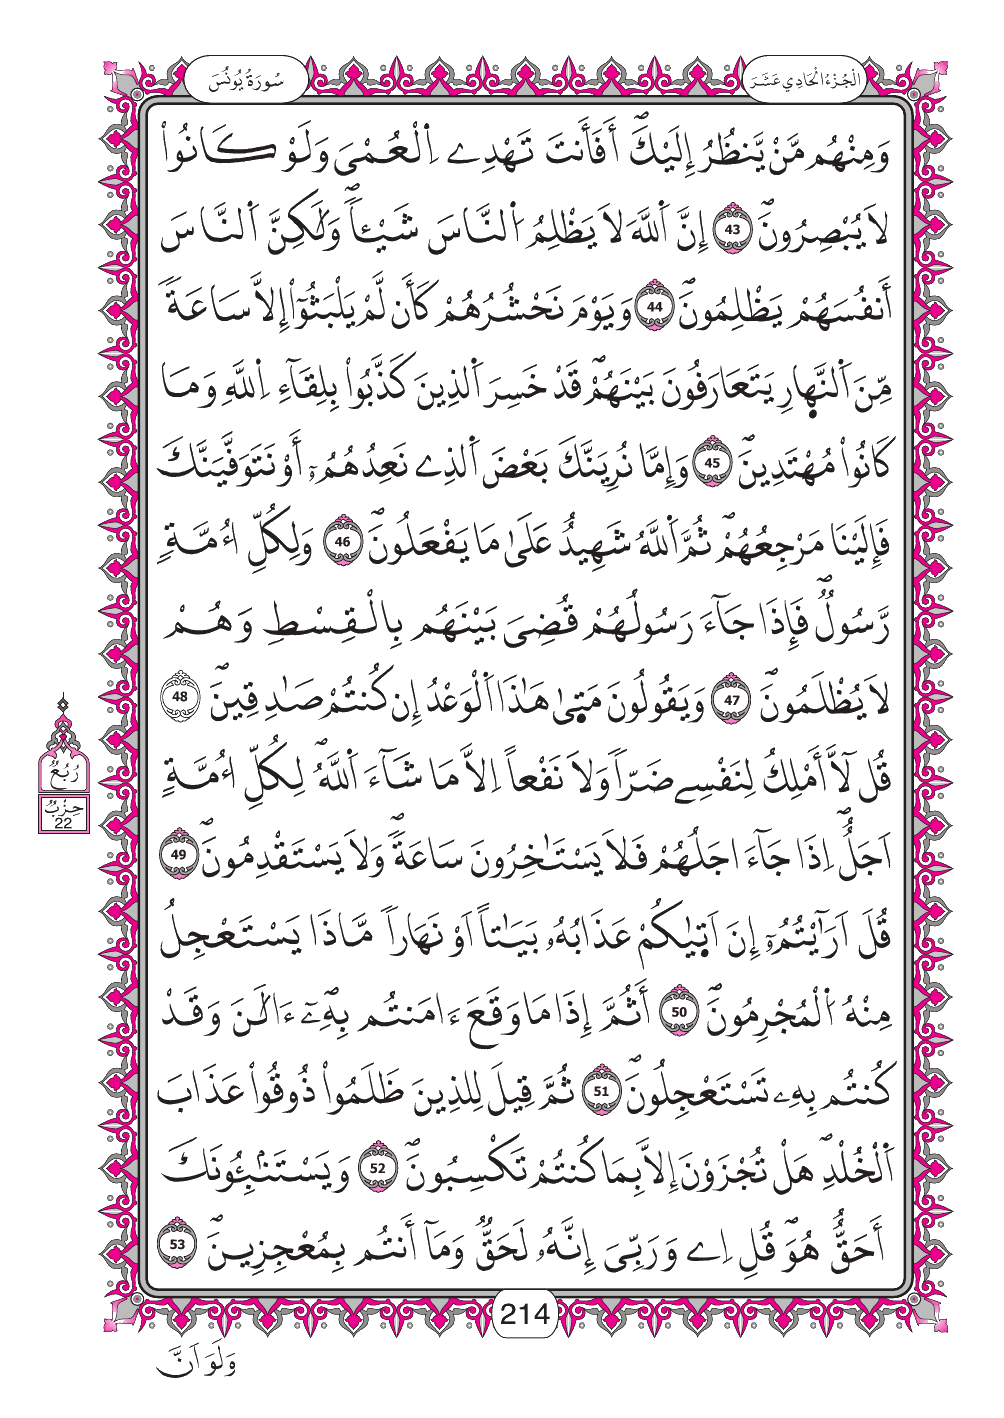 الْجُزْءُ الْحَادِي عَشَرَ
سُورَةُ يُونُسَ
وَمِنْهُم مَّنْ يَّنظُرُ إِلَيْكَۖ أَفَأَنتَ تَهْدِے اِ۬لْعُمْيَ وَلَوْ كَانُواْ
لَا يُبْصِرُونَۖ 43 إِنَّ اَ۬للَّهَ لَا يَظْلِمُ اُ۬لنَّاسَ شَيْـٔاٗۖ وَلَٰكِنَّ اَ۬لنَّاسَ
أَنفُسَهُمْ يَظْلِمُونَۖ 44 وَيَوْمَ نَحْشُرُهُمْ كَأَن لَّمْ يَلْبَثُوٓاْ إِلَّا سَاعَةٗ
مِّنَ اَ۬لنَّه۪ارِ يَتَعَارَفُونَ بَيْنَهُمْۖ قَدْ خَسِرَ اَ۬لذِينَ كَذَّبُواْ بِلِقَآءِ اِ۬للَّهِ وَمَا
كَانُواْ مُهْتَدِينَۖ 45 وَإِمَّا نُرِيَنَّكَ بَعْضَ اَ۬لذِے نَعِدُهُمُۥٓ أَوْ نَتَوَفَّيَنَّكَ
فَإِلَيْنَا مَرْجِعُهُمْۖ ثُمَّ اَ۬للَّهُ شَهِيدٌ عَلَىٰ مَا يَفْعَلُونَۖ 46 وَلِكُلِّ أُمَّةٖ
رَّسُولٞۖ فَإِذَا جَآءَ رَسُولُهُمْ قُضِيَ بَيْنَهُم بِالْقِسْطِ وَهُمْ
لَا يُظْلَمُونَۖ 47 وَيَقُولُونَ مَت۪ىٰ هَٰذَا اَ۬لْوَعْدُ إِن كُنتُمْ صَٰدِقِينَۖ 48
قُل لَّآ أَمْلِكُ لِنَفْسِے ضَرّاٗ وَلَا نَفْعاً اِلَّا مَا شَآءَ اَ۬للَّهُۖ لِكُلِّ أُمَّةٍ
اَجَلٌۖ اِذَا جَآءَ اجَلُهُمْ فَلَا يَسْتَٰٔخِرُونَ سَاعَةٗۖ وَلَا يَسْتَقْدِمُونَۖ 49
قُلَ اَرَٰٓيْتُمُۥٓ إِنَ اَت۪يٰكُمْ عَذَابُهُۥ بَيَٰتاً اَوْ نَهَاراٗ مَّاذَا يَسْتَعْجِلُ
مِنْهُ اُ۬لْمُجْرِمُونَۖ 50 أَثُمَّ إِذَا مَا وَقَعَ ءَامَنتُم بِهِۦٓۖ ءَآلَٰنَ وَقَدْ
كُنتُم بِهِۦ تَسْتَعْجِلُونَۖ 51 ثُمَّ قِيلَ لِلذِينَ ظَلَمُواْ ذُوقُواْ عَذَابَ
اَ۬لْخُلْدِۖ هَلْ تُجْزَوْنَ إِلَّا بِمَا كُنتُمْ تَكْسِبُونَۖ 52 وَيَسْتَنۢبِـُٔونَكَ
أَحَقٌّ هُوَۖ قُلِ اِے وَرَبِّيَ إِنَّهُۥ لَحَقّٞ وَمَآ أَنتُم بِمُعْجِزِينَۖ 53
رُبُعٌ
حِزْبٌ
22
214
وَلَوَ اَنَّ